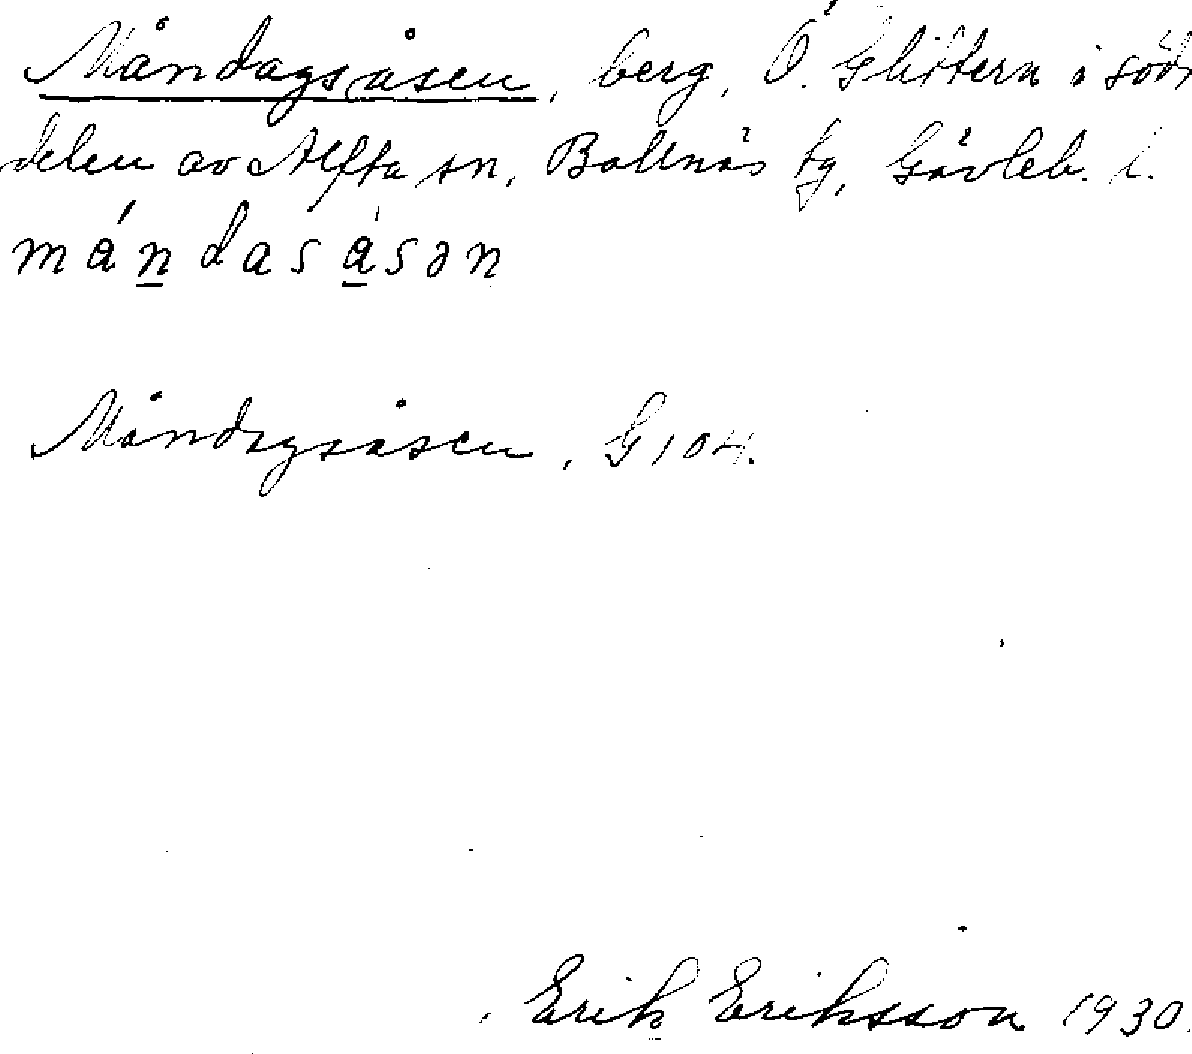 Måndagsåsen, berg, Ö. Glittern i söd
delen av Alfta sn, Bollnäs tg, Gävleb. l.
mándasåsən
Måndagsåsen, G 104.
Erik Eriksson 1930.